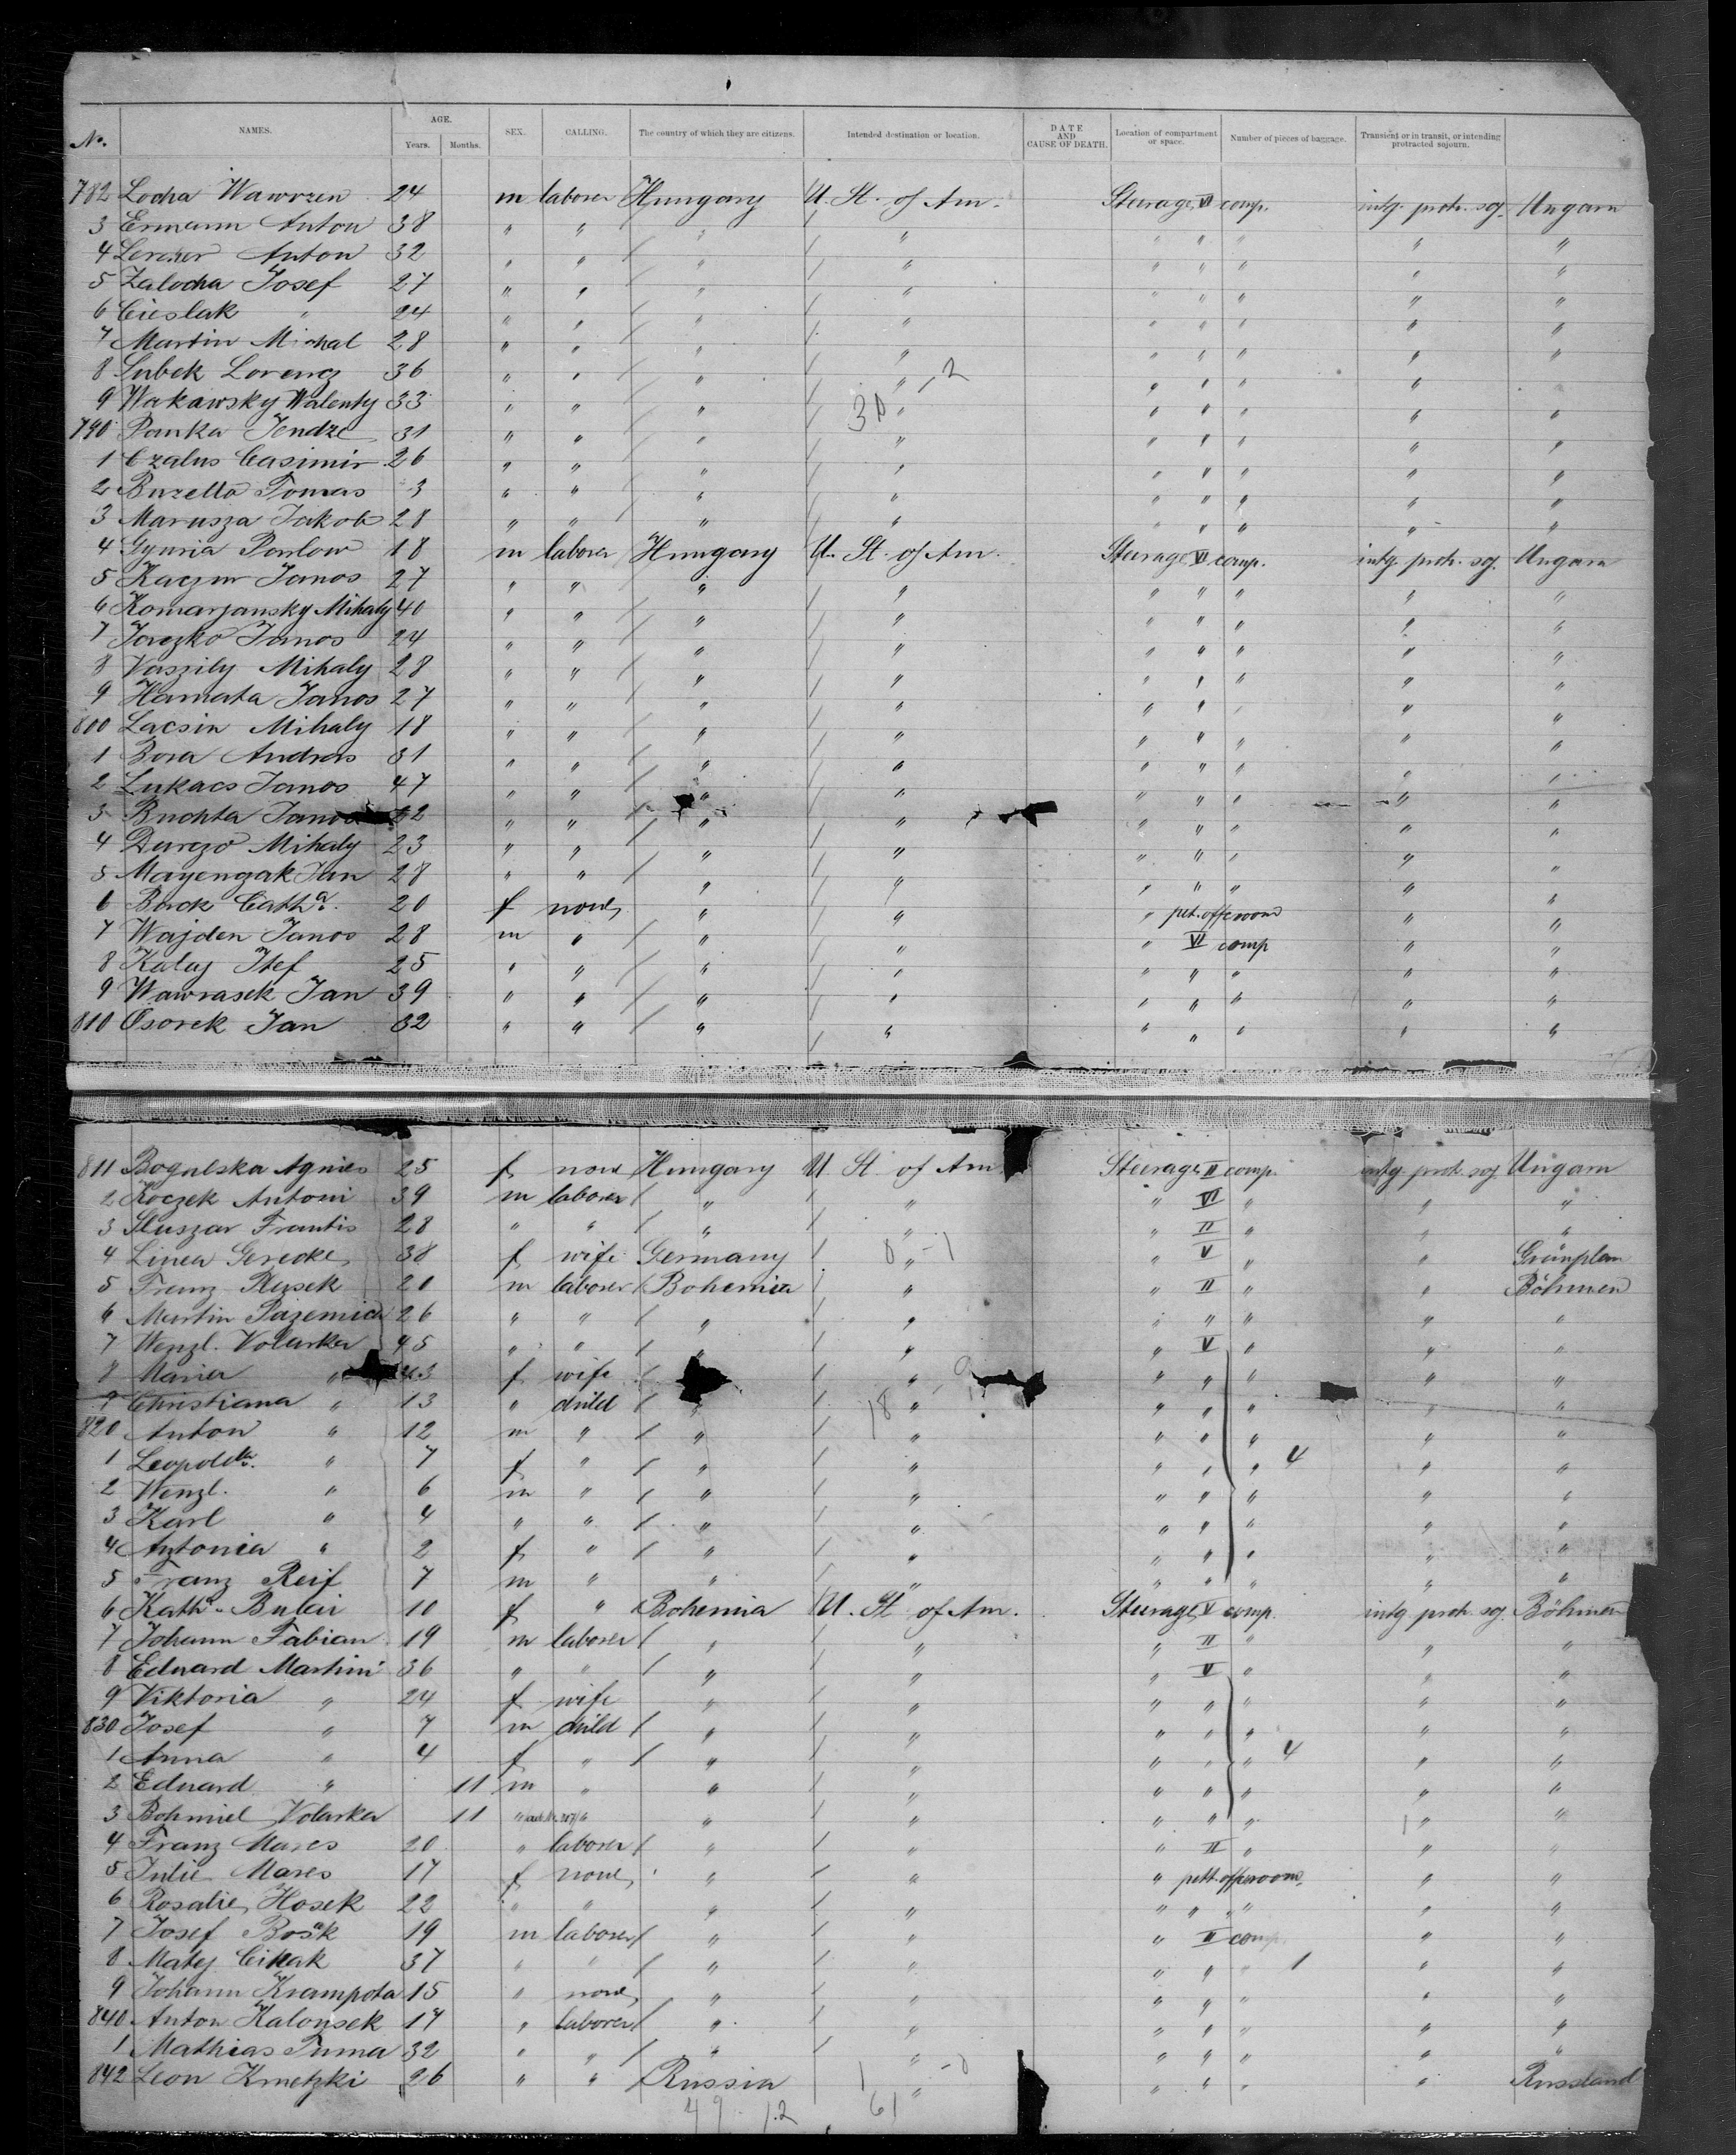 No. NAMES. AGE. Years. Months. SEX. CALLING. The country of which they are citizens. Intended destination or location. DATE AND CAUSE OF DEATH. Location of compartment or space. Number of pieces of baggage. Transient or in transit, or intending protracted sojourn.
782 Locha Wawrzen 24 m laborer Hungary U. St. of Am. Steerage VI comp. intg. protr. soj. Ungarn
3 Ermann Anton 38 " " " " " " " " "
4 Lercher Anton 32 " " " " " " " " "
5 Zalocha Josef 27 " " " " " " " " "
6 Cieslak " 24 " " " " " " " " "
7 Martin Michal 28 " " " " " " " " "
8 Subek Lorenz 36 " " " " " " " "
9 Wakawsky Walenty 33 " " " " " " " " "
790 Panka Jendze 31 " " " " " " " " "
1 Czalus Casimir 26 " " " " " " " " "
2 Buzella Tomas 3 " " " " " " " " "
3 Marusza Jakob 28 " " " " " " " " "
4 Gyuria Pawlow 18 m laborer Hungary U. St. of Am. Steerage VI comp. intg. protr. soj. Ungarn
5 Kaczur Janos 27 " " " " " " " " "
6 Komarjansky Mihaly 40 " " " " " " " " "
7 Jaczko Janos 24 " " " " " " " " "
8 Vaszily Mihaly 28 " " " " " " " " "
9 Hamata Janos 27 " " " " " " " " "
800 Lacsin Mihaly 18 " " " " " " " " "
1 Bora Andras 31 " " " " " " " " "
2 Lukacs Janos 47 " " " " " " " " "
3 Buchta Janos 22 " " " " " " " " "
4 Durczo Mihaly 23 " " " " " " " " "
5 Mayengak Jan 28 " " " " " " " " "
6 Back Cath.a 20 f none " " " pet. off. room " "
7 Wajden Janos 28 m " " " " VI comp " "
8 Kalaj Stef 25 " " " " " " " " "
9 Wawrasek Jan 39 " " " " " " " " "
810 Osorek Jan 32 " " " " " " " " "
811 Bogulska Agnies 25 f none Hungary U. St. of Am Steerage II comp. intg. protr. soj. Ungarn
2 Koczek Antoni 39 m laborer " " " VI " " "
3 Sluszar Frantis 28 " " " " " II " " "
4 Linea Gerecke 38 f wife Germany " " V " " Grünplan
5 Franz Plusek 20 m laborer Bohemia " " II " " Böhmen
6 Martin Pazemica 26 " " " " " " " " "
7 Wenzl. Volarka 45 " " " " " V " " "
8 Maria " 43 f wife " " " " " "
9 Christiana " 13 " child " " " " " "
820 Anton " 12 m " " " " " " " "
1 Leopold.a " 7 f " " " " " " 4 " "
2 Wenzl. " 6 m " " " " " " " "
3 Karl " 4 " " " " " " " " "
4 Antonia " 2 f " " " " " " " "
5 Franz Reif 7 m " " " " " " " "
6 Kath.a 10 f " Bohemia U. St of Am. Steerage V comp. intg. protr. soj. Böhmen
7 Johann Fabian 19 m laborer " " " II " " "
8 Eduard Martini 36 " " " " " V " " "
9 Viktoria " 24 f wife " " " " " " "
830 Josef " 7 m child " " " " " " "
1 Anna " 4 f " " " " " " 4 " "
2 Eduard " 11 m " " " " " " " "
3 Bohmiel Volarka 11 " " " " " " " "
4 Franz Mares 20 " laborer " " " II " " "
5 Julie Mares 17 f none " " " pett. off. room " "
6 Rosalie Hosek 22 " " " " " " " " "
7 Josef Bosak 19 m laborer " " " II comp. " "
8 Matej Cihak 37 " " " " " " " 1 " "
9 Johann Krampota 15 " none " " " " " " "
840 Anton Kalousek 17 " laborer " " " " " " "
1 Mathias Tuma 32 " " " " " " " " "
842 Leon Kmetzki 26 " " Russia " " " " " Russland
49 12 61